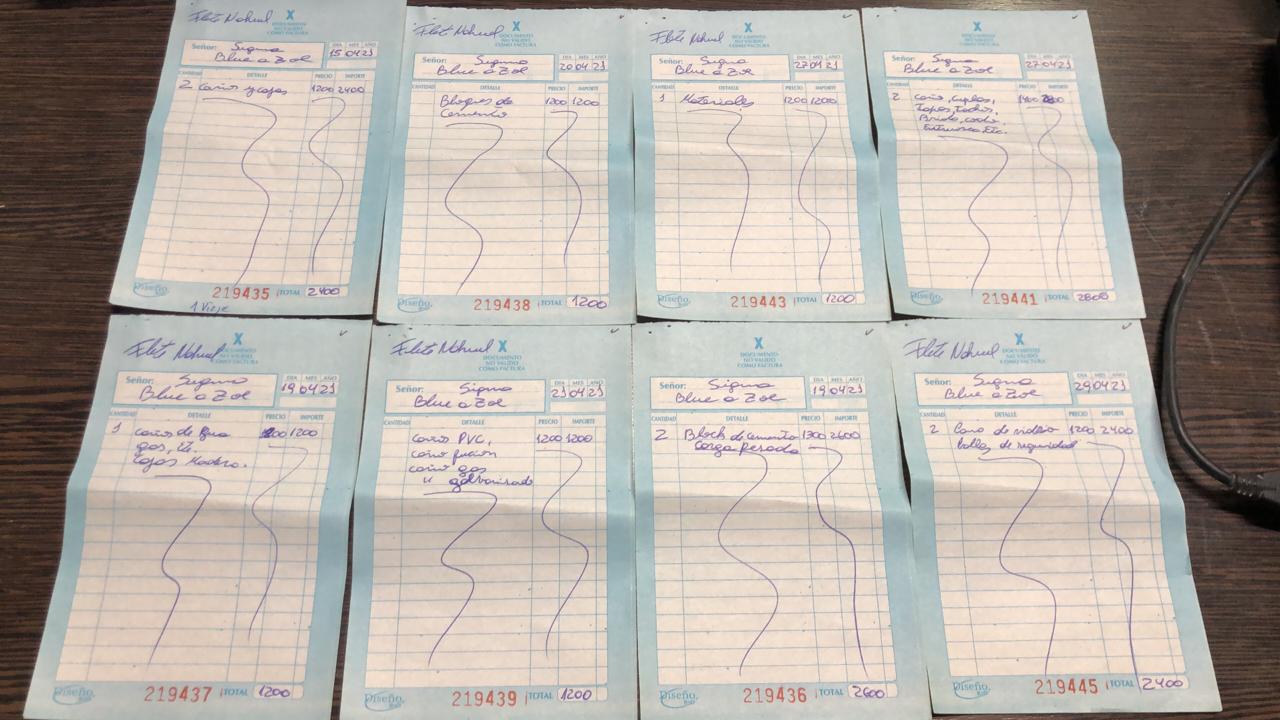 Flete Nahuel
X
DOCUMENTO
NO VALIDO
COMO FACTURA
Señor: Sigma
Blue a Zol
DIA MES AÑO
15 04 21
CANTIDAD DETALLE PRECIO IMPORTE
2 Caños y cajas 1200 2400
Diseño
219435 TOTAL 2400
1 Viaje
Flete Nahuel
X
DOCUMENTO
NO VALIDO
COMO FACTURA
Señor: Sigma
Blue a Zol
DIA MES AÑO
20 04 21
CANTIDAD DETALLE PRECIO IMPORTE
Bloques de 1200 1200
Cemento
Diseño
219438 TOTAL 1200
Flete Nahuel
X
DOCUMENTO
NO VALIDO
COMO FACTURA
Señor: Sigma
Blue a Zol
DIA MES AÑO
27 04 21
CANTIDAD DETALLE PRECIO IMPORTE
1 Materiales 1200 1200
Diseño
219443 TOTAL 1200
X
DOCUMENTO
NO VALIDO
COMO FACTURA
Señor: Sigma
Blue a Zol
DIA MES AÑO
27 04 21
CANTIDAD DETALLE PRECIO IMPORTE
2 caño, cuplas, 1400
Tapas,
Brida, codo,
Etc.
Diseño
219441 TOTAL 2800
Flete Nahuel
X
DOCUMENTO
NO VALIDO
COMO FACTURA
Señor: Sigma
Blue a Zol
DIA MES AÑO
19 04 21
CANTIDAD DETALLE PRECIO IMPORTE
1 caños de 1200 1200
gas,
Cajas Madera.
Diseño
219437 TOTAL 1200
Flete Nahuel
X
DOCUMENTO
NO VALIDO
COMO FACTURA
Señor: Sigma
Blue a Zol
DIA MES AÑO
21 04 21
CANTIDAD DETALLE PRECIO IMPORTE
caños PVC, 1200 1200
caño fusion
caño gas
" galvanizado
Diseño
219439 TOTAL 1200
X
DOCUMENTO
NO VALIDO
COMO FACTURA
Señor: Sigma
Blue a Zol
DIA MES AÑO
19 04 21
CANTIDAD DETALLE PRECIO IMPORTE
2 Block de cemento 1300 2600
Carga Pesada
Diseño
219436 TOTAL 2600
Flete Nahuel
X
DOCUMENTO
NO VALIDO
COMO FACTURA
Señor: Sigma
Blue a Zol
DIA MES AÑO
29 04 21
CANTIDAD DETALLE PRECIO IMPORTE
2 Lana de vidrio 1200 2400
de seguridad
Diseño
219445 TOTAL 2400